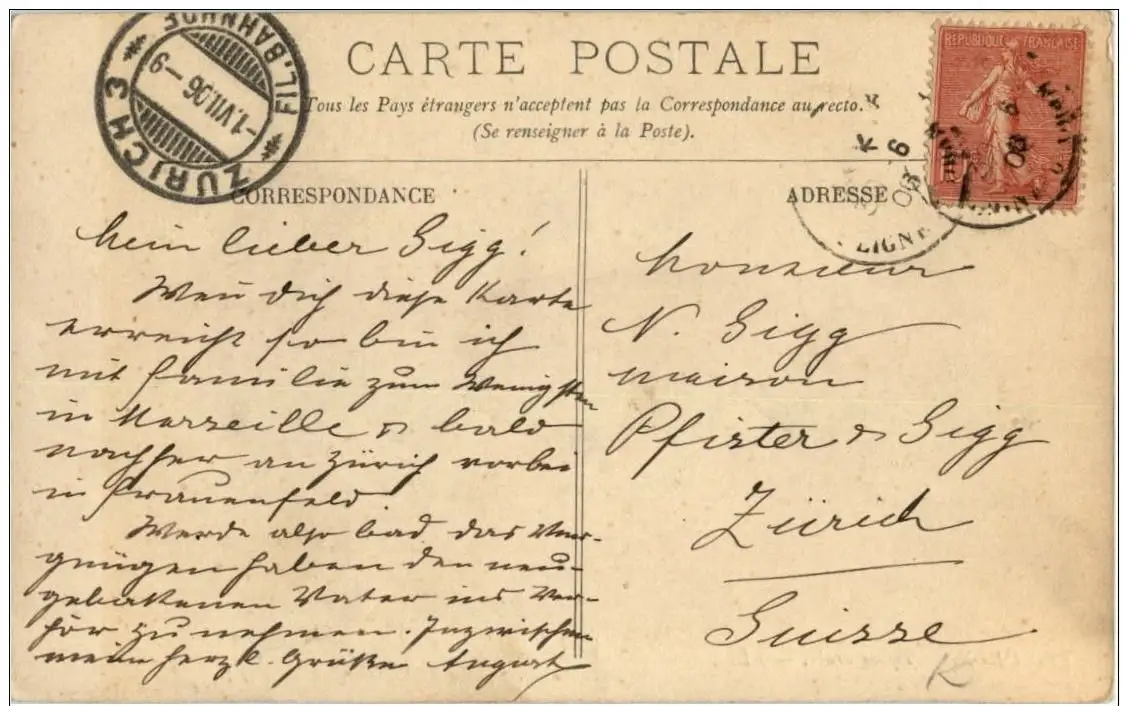 CARTE POSTALE
Tous les Pays étrangers n'acceptent pas la Correspondance au recto.
(Se renseigner à la Poste).
ZÜRICH 3
FIL. BAHNHOF
-1.VII.06-9
REPUBLIQUE FRANÇAISE
LIGNE
CORRESPONDANCE
Mein lieber Sigg!
Wen̄ dich diese Karte
erreicht so bin ich
mit Familie zum Wenigsten
in Marseille & bald
nachher an Zürich vorbei
in Frauenfeld
Werde also bad das Ver-
gnügen haben den neu-
gebakenen Vater ins Ver-
hör zu nehmen. Inzwischen
mein herzl. Grüße August
ADRESSE
Monsieur
N. Sigg
maison
Pfister & Sigg
Zürich
Suisse